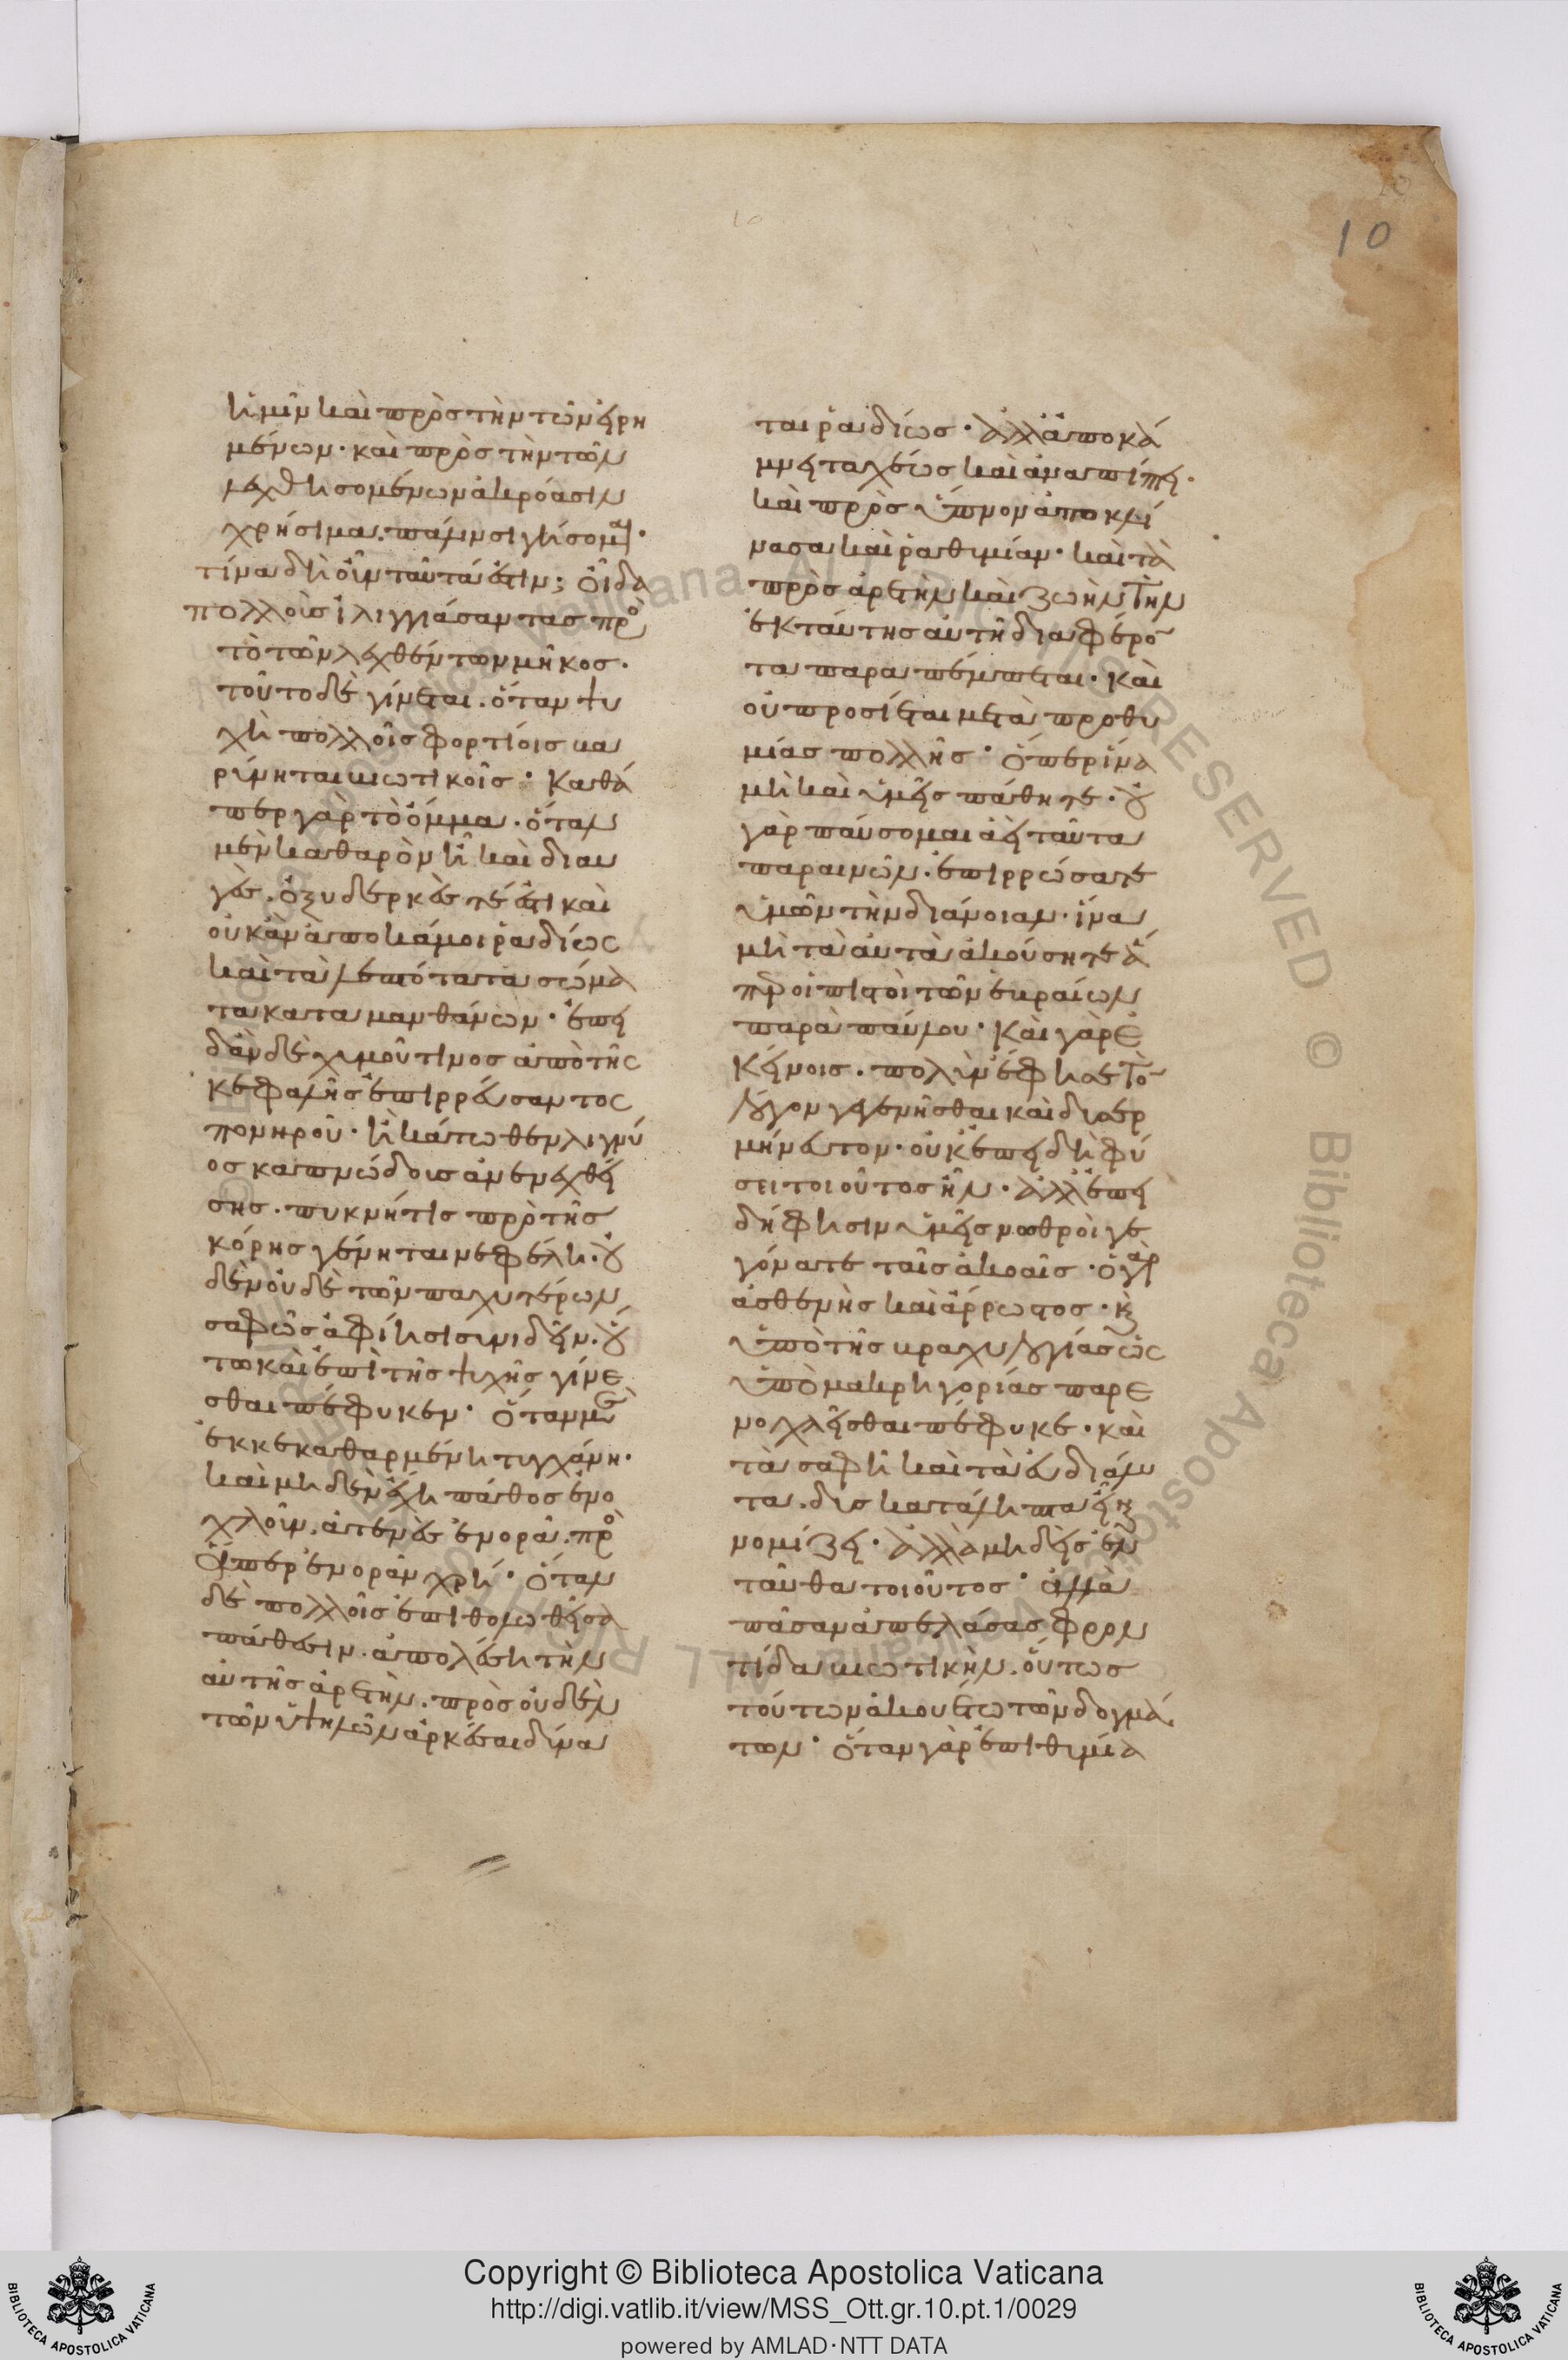 10
10
ἡμῖν καὶ πρὸς τὴν τῶν εἰρη
μένων· καὶ πρὸς τὴν τῶν
λεχθησομένων ἀκρόασιν
χρήσιμα. πάλιν σιγήσομαι·
τίνα δὴ οὖν ταῦτά ἐστιν; οἶδα
πολλοὺς ἰλιγγιάσαντας πρὸς
τὸ τῶν λεχθέντων μῆκος.
τοῦτο δὲ γίνεται. ὅταν ψυ
χὴ πολλοῖς φορτίοις βα
ρύνηται βιωτικοῖς· Καθά
περ γὰρ τὸ ὄμμα. ὅταν
μὲν καθαρὸν ἦ καὶ διαυ
γὲς. ὀξυδερκές τέ ἐστι καὶ
οὐκ ἂν ἀποκάμοι ῥαδίως
καὶ τὰ λεπτότατα σώμα
τα καταμανθάνων· ἐπει
δὰν δὲ χυμοῦ τινος ἀπὸ τῆς
κεφαλῆς ἐπιρρεύσαντος
πονηροῦ· ἢ κάτωθεν λιγνύ
ος καπνώδους ἀνενεχθεί
σης. πυκνή τις πρὸ τῆς
κόρης γένηται νεφέλη. οὐ
δὲν οὐδὲ τῶν παχυτέρων
σαφῶς ἀφίησι συνιδεῖν. οὕ
τω καὶ ἐπὶ τῆς ψυχῆς γίνε
σθαι πέφυκεν· Ὅταν μὲν
ἐκκεκαθαρμένη τυγχάνη·
καὶ μηδὲν ἔχη πάθος ἐνο
χλοῦν. ἀτενὲς ἐνορᾶ. πρὸς
ἅπερ ἐνορᾶν χρή· Ὅταν
δὲ πολλοῖς ἐπιθολωθεῖσα
πάθεσιν. ἀπολέση τὴν
αὐτῆς ἀρετὴν. πρὸς οὐδὲν
τῶν ὑψηλῶν ἀρκέσαι δύνα
ται ῥαδίως· ἀλλ' ἀποκά
μνει ταχέως καὶ ἀναπίπτει·
καὶ πρὸς ὕπνον ἀποκλί
νασα καὶ ῥαθυμίαν· καὶ τὰ
πρὸς ἀρετὴν καὶ ζωὴν τὴν
ἐκ ταύτης αὐτῆ διαφέρον
τα παραπέμπεται· καὶ
οὐ προσίεται μετὰ προθυ
μίας πολλῆς· Ὅπερ ἵνα
μὴ καὶ ὑμεῖς πάθητε· οὐ
γὰρ παύσομαι ἀεὶ ταῦτα
παραινῶν. ἐπιρρώσατε
ὑμῶν τὴν διάνοιαν. ἵνα
μὴ τὰ αὐτὰ ἀκούσητε ἅ
περ οἱ πιστοὶ τῶν ἑβραίων
παρὰ παύλου· Καὶ γὰρ ἐ
κείνοις. πολὺν ἔφησε τὸν
λόγον γεγενῆσθαι καὶ δυσερ
μήνευτον· οὐκ ἐπειδὴ φύ
σει τοιοῦτος ἦν· ἀλλ' ἐπει
δή φησιν ὑμεῖς νωθροὶ γε
γόνατε ταῖς ἀκοαῖς· ὁ γὰρ
ἀσθενὴς καὶ ἄρρωστος· καὶ
ὑπὸ τῆς βραχυλογίας ὡς
ὑπὸ μακρηγορίας παρε
νοχλεῖσθαι πέφυκε· καὶ
τὰ σαφῆ καὶ τὰ εὐδιάλυ
τα. δυσκατάληπτα εἶναι
νομίζει· Ἀλλὰ μηδεὶς ἐν
ταῦθα τοιοῦτος· ἀλλὰ
πᾶσαν ἀπελάσας φρον
τίδα βιωτικὴν. οὕτως
τούτων ἀκουέτω τῶν δογμά
των· Ὅταν γὰρ ἐπιθυμία
Copyright © Biblioteca Apostolica Vaticana
http://digi.vatlib.it/view/MSS_Ott.gr.10.pt.1/0029
powered by AMLAD·NTT DATA